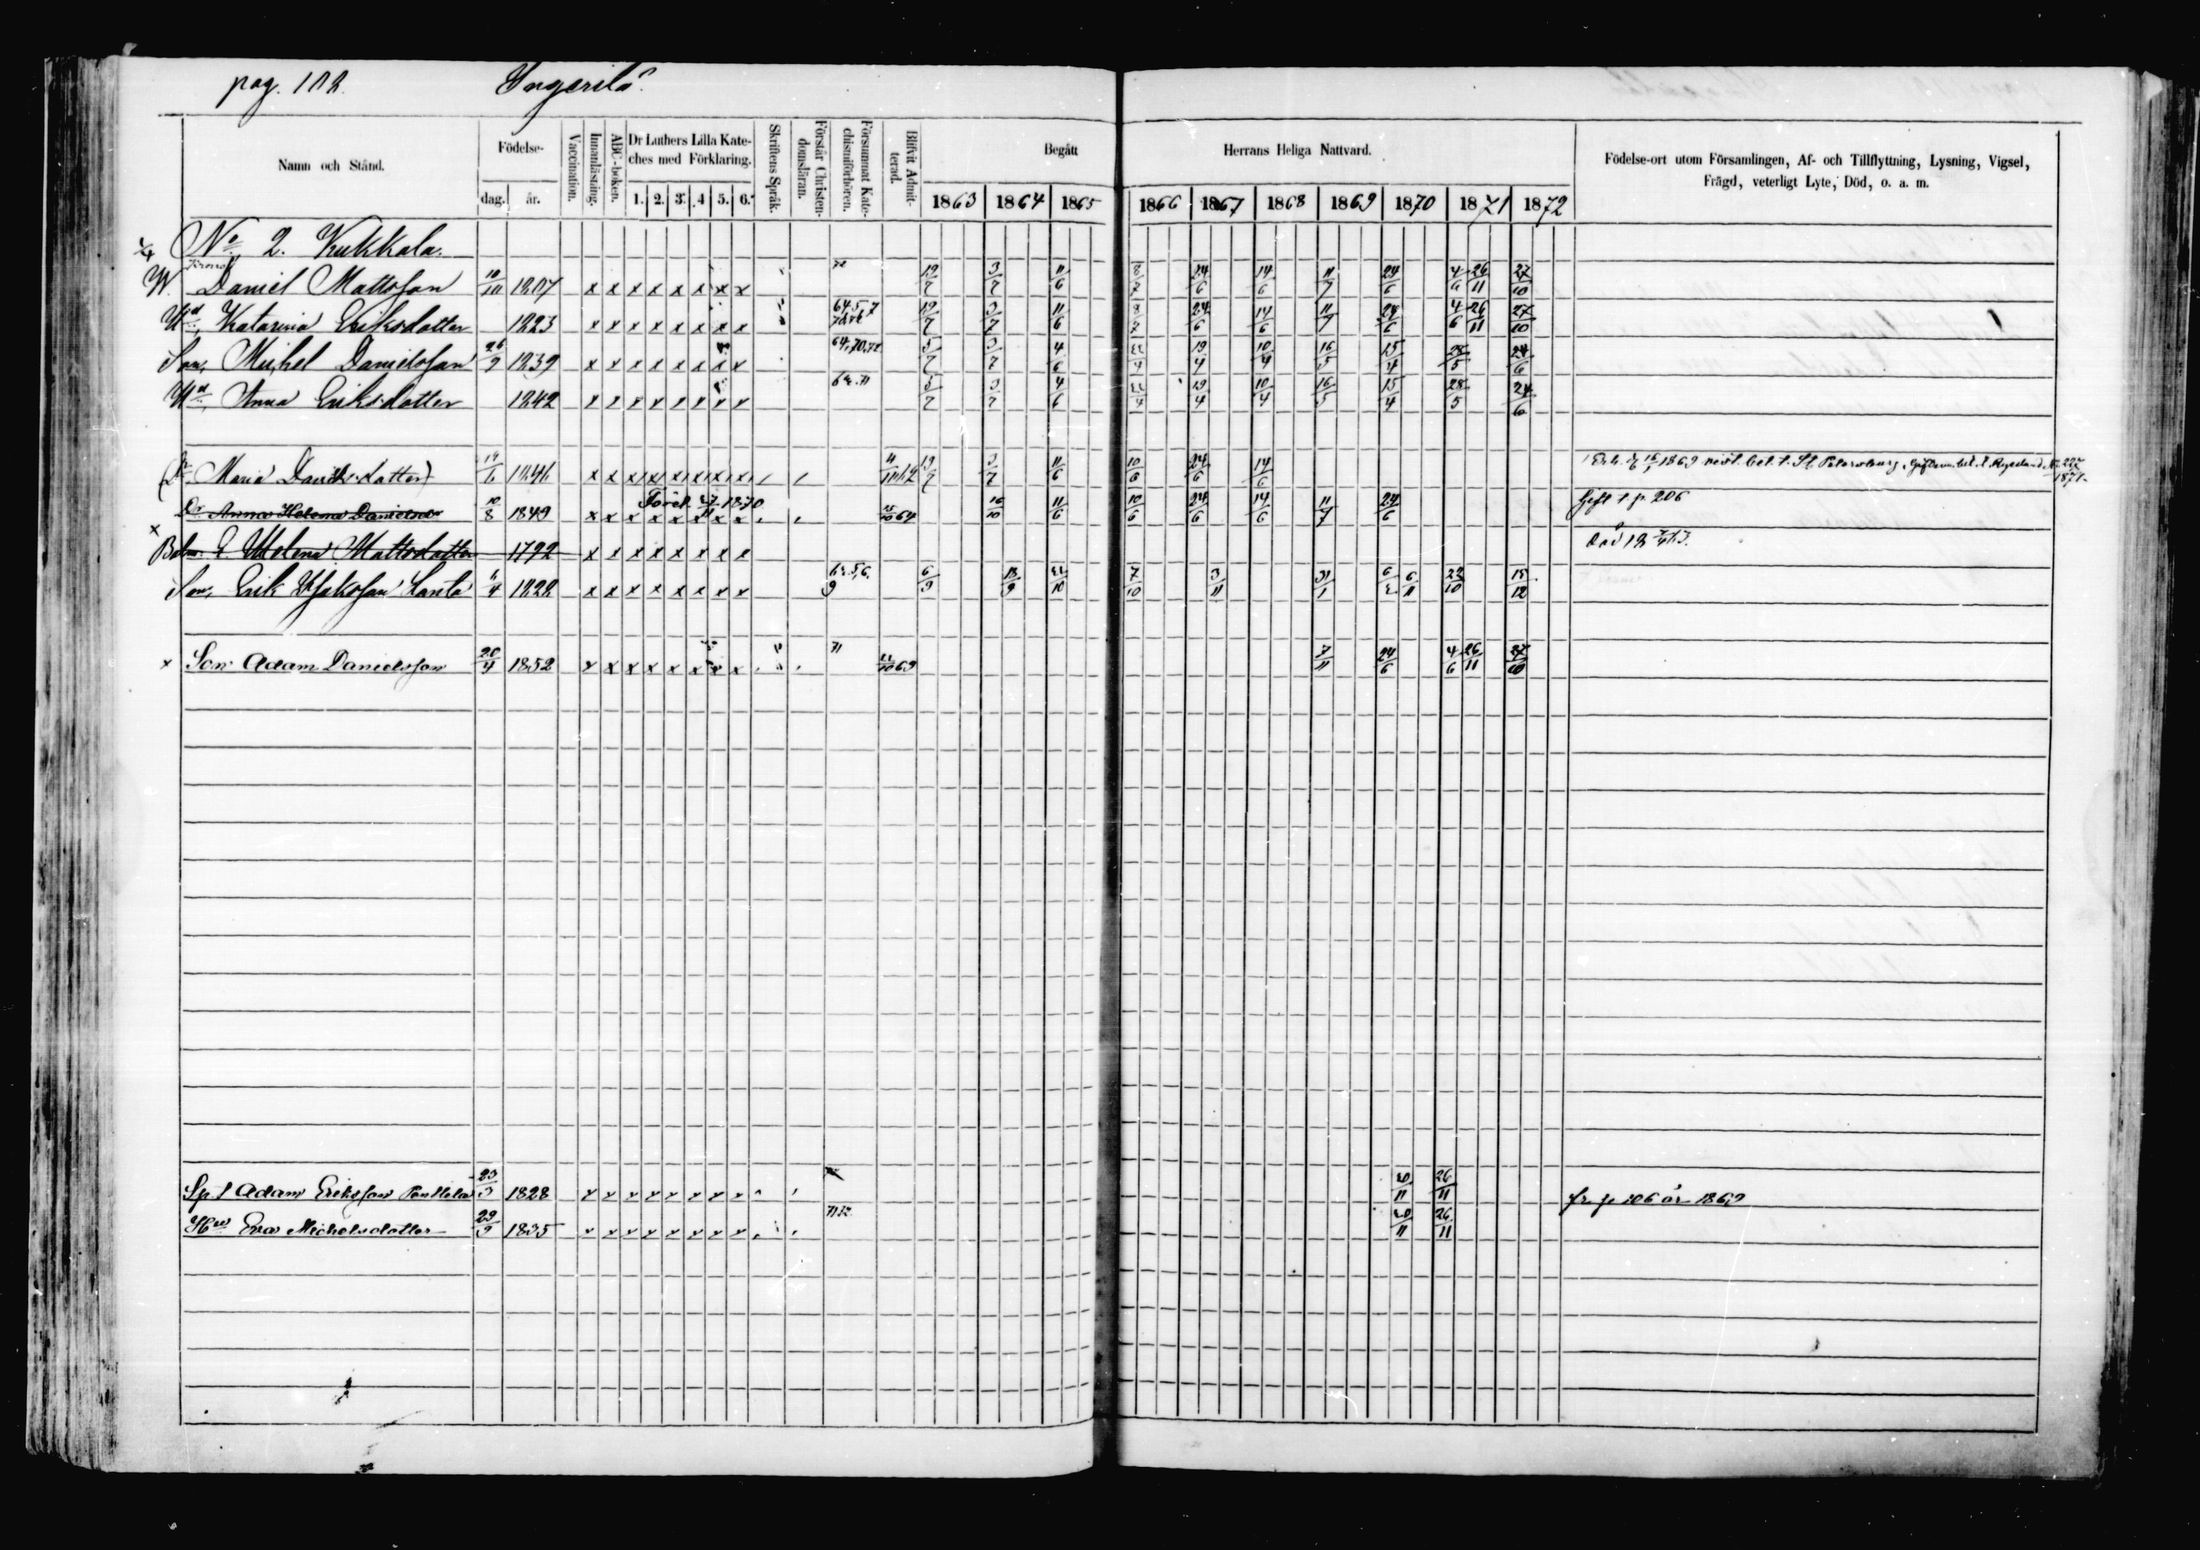 pag. 102. Ingerilä
Namn och Stånd. Födelse- dag. år. Vaccination. Innanläsning. ABC-boken. Dr Luthers Lilla Kateches med Förklaring. 1. 2. 3. 4 5. 6. Skriftens Språk. Förstår Christendomsläran. Försummat Katechismiförhören. Blifvit Admitterad. Begått Herrans Heliga Nattvard. Födelse-ort utom Församlingen, Af- och Tillflyttning, Lysning, Vigsel,
Frägd, veterligt Lyte, Död, o. a. m.
1863 1864 1865 1866 1867 1868 1869 1870 1871 1872
No 2. Kukkola.
Daniel Mattsson 10/10 1807 x x x x x x x x 72 19/7 3/7 11/6 8/7 24/6 14/6 11/7 24/6 4/6 26/11 27/10
Katarina Eriksdotter 1823 x x x x x x x x 64,5,7 19/7 3/7 11/6 8/7 24/6 14/6 11/7 24/6 4/6 26/11 27/10
Son, Michel Danielsson 26/9 1839 x x x x x x x x 64,70,72 5/7 3/7 4/6 19/4 10/4 16/5 15/4 28/5 24/6
Anna Eriksdotter 1842 x x x x x x x x 5/7 3/7 4/6 19/4 10/4 16/5 15/4 28/5 24/6
(Dr Maria Danielsdotter) 19/6 1846 x x x x x x x x 19/7 3/7 11/6 10/6 24/6 14/6 1869 bet. t. St Petersburg, 1871.
Dr Anna Helena Danielsd 10/8 1849 x x x x x x x x 1870 64 16/10 11/6 10/6 24/6 14/6 11/7 24/6 Gift t. p. 206
Helena Mattsdotter 1792 x x x x x x x x Död
Son, Erik 6/4 1822 x x x x x x x x 9 6/9 18/9 7/10 3/11 31/1 6/11 22/10 15/12
x Son Adam Danielsson 20/4 1852 x x x x x x x x 71 69 7/11 24/6 4/6 26/11 27/10
Sp. Adam Eriksson 23/3 1828 x x x x x x x x 30/11 26/11 fr p 106 år 1869
Eva Michelsdotter 29/9 1835 x x x x x x x x 30/11 26/11